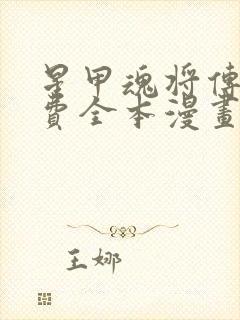 星甲魂將傳
費全本漫畫
王娜